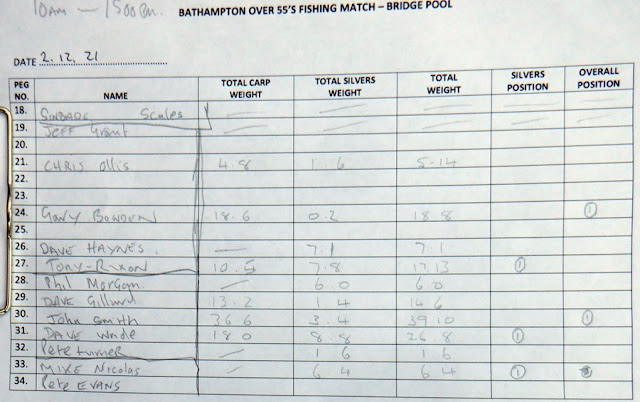 10AM - 1500PM.
BATHAMPTON OVER 55'S FISHING MATCH – BRIDGE POOL
DATE 2.12.21
PEG NO. NAME TOTAL CARP WEIGHT TOTAL SILVERS WEIGHT TOTAL WEIGHT SILVERS POSITION OVERALL POSITION
18. SINBADE Scales — — — — —
19. Jeff Grant — — — — —
20.
21. CHRIS Ollis 4.8 1 6 5-14
22.
23.
24. GARY BOWDEN 18.6 0.2 18 8 1
25.
26. DAVE HAYNES. — 7.1 7.1
27. Tony-Rixon 10.5 7.8 17.13 1
28. Phil Morgan — 6 0 6.0
29. DAVE Gillard 13.2 1 4 14 6
30. John Smith 36 6 3.4 39 10 1
31. DAVE Wride 18 0 8 8 26.8 1
32. Pete Turner — 1 6 1 6
33. MIKE Nicolas — 6 4 6 4 1
34. Pete EVANS